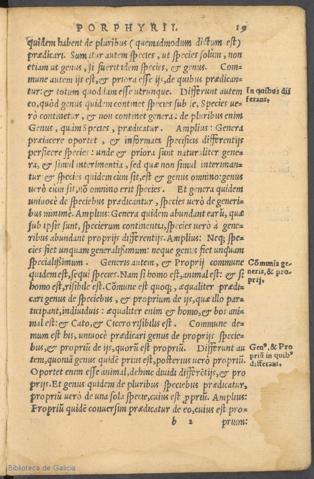 PORPHYRII. 19
quidem habent de pluribus (quemadmodum dictum est)
prædicari. Sumatur autem species, ut species solùm, non
etiam ut genus, si fuerit idem species, et genus. Com
mune autem ijs est, & priora esse ijs, de quibus prædican-
tur: & totum quoddam esse utrunque. Differunt autem
eo, quòd genus quidem continet species sub se. Species ue-
rò continetur, & non continet genera: de pluribus enim
Genus, quàm Species, prædicatur. Amplius: Genera
præiacere oportet, & informata specificis differentijs
perficere species: unde & priora sunt naturaliter gene-
ra, & simul interimentia, sed quæ non simul interiman-
tur & species quidem cùm sit, est & genus omnino: genus
uerò cùm sit, nō omnino erit species. Et genera quidem
uniuocè de speciebus prædicantur, species uerò de generi-
bus minimè. Amplius: Genera quidem abundant earū, quæ
sub ipsis sunt, specierum continentia, species uerò à gene-
ribus abundant proprijs differentijs. Amplius: Neq; spe-
cies fiet unquam generalissimum: neque genus fiet unquam
specialissimum. Generis autem, & Proprij commune
quidem est, sequi species. Nam si homo est, animal est: & si
homo est, risibile est. Cōmune est quoq;, æqualiter prædi
cari genus de speciebus, & proprium de ijs, quæ illo par-
ticipant, indiuiduis: æqualiter enim & homo, & bos ani-
mal est: & Cato, & Cicero risibilis est. Commune de-
mum est his, uniuocè prædicari genus de proprijs specie-
bus, & propriū de ijs, quorū est propriū. Differūt au
tem, quoniā genus quidē prius est, posterius uerò propriū.
Oportet enim esse animal, dehinc diuidi differētijs, & pro
prijs. Et genus quidem de pluribus speciebus prædicatur,
propriū uerò de una sola specie, cuius est ꝓpriū. Amplius:
Propriū quidē conuersim prædicatur de eo, cuius est pro-
b 2 prium:
In quibus dif
ferant.
Cōmunia ge
neris, & pro-
prij.
Genꝰ, & Pro
priū in quibꝰ
differant.
Biblioteca de Galicia